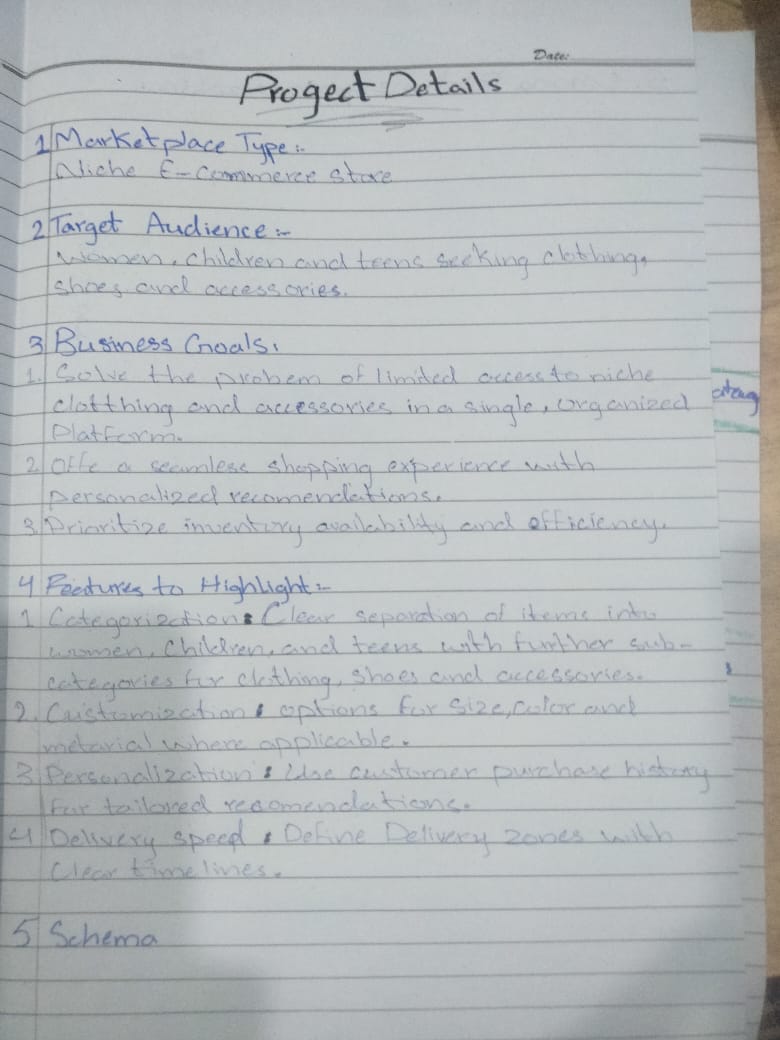 Date:
Progect Details
1 Marketplace Type:-
Niche E-Commerce Store
2 Target Audience:-
Women, children and teens seeking clothing,
shoes and accessories.
3 Business Goals:
1. Solve the probem of limited access to niche
clotthing and accessories in a single, organized
Platform.
2. Offe a seamless shopping experience with
personalized recomendations.
3. Prioritize inventory availability and efficiency.
4 Features to Highlight:-
1 Categorization: Clear separation of items into
women, Children, and teens with further sub-
categories for clothing, shoes and accessories.
2. Customization: options for size, color and
metarial where applicable.
3 Personalization: Use customer purchase history
for tailored recomendations.
4 Delivery speed: Define Delivery zones with
Clear timelines.
5 Schema